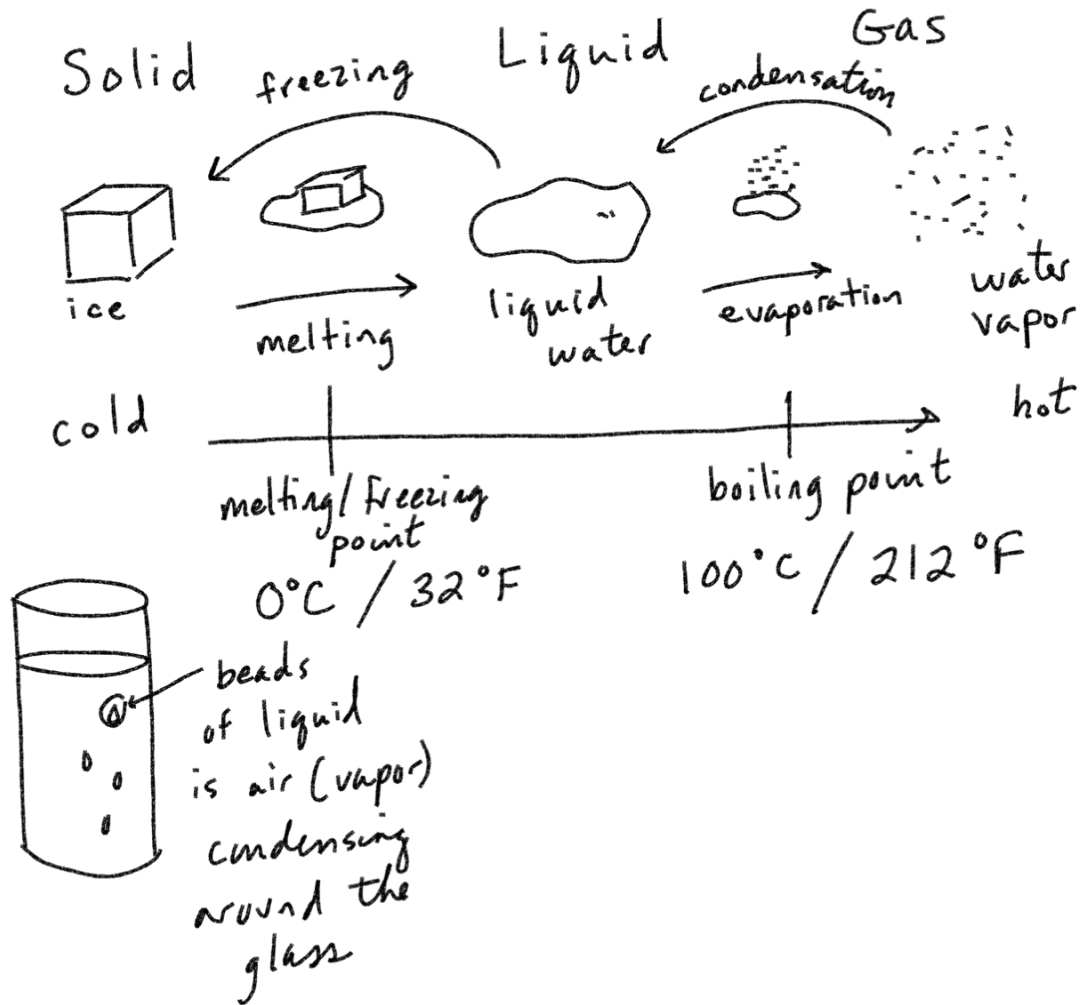 Solid
freezing
Liquid
condensation
Gas
ice
melting
liquid
water
evaporation
water
vapor
cold
hot
melting/freezing
point
boiling point
0°C / 32°F
100°C / 212°F
beads
of liquid
is air (vapor)
condensing
around the
glass